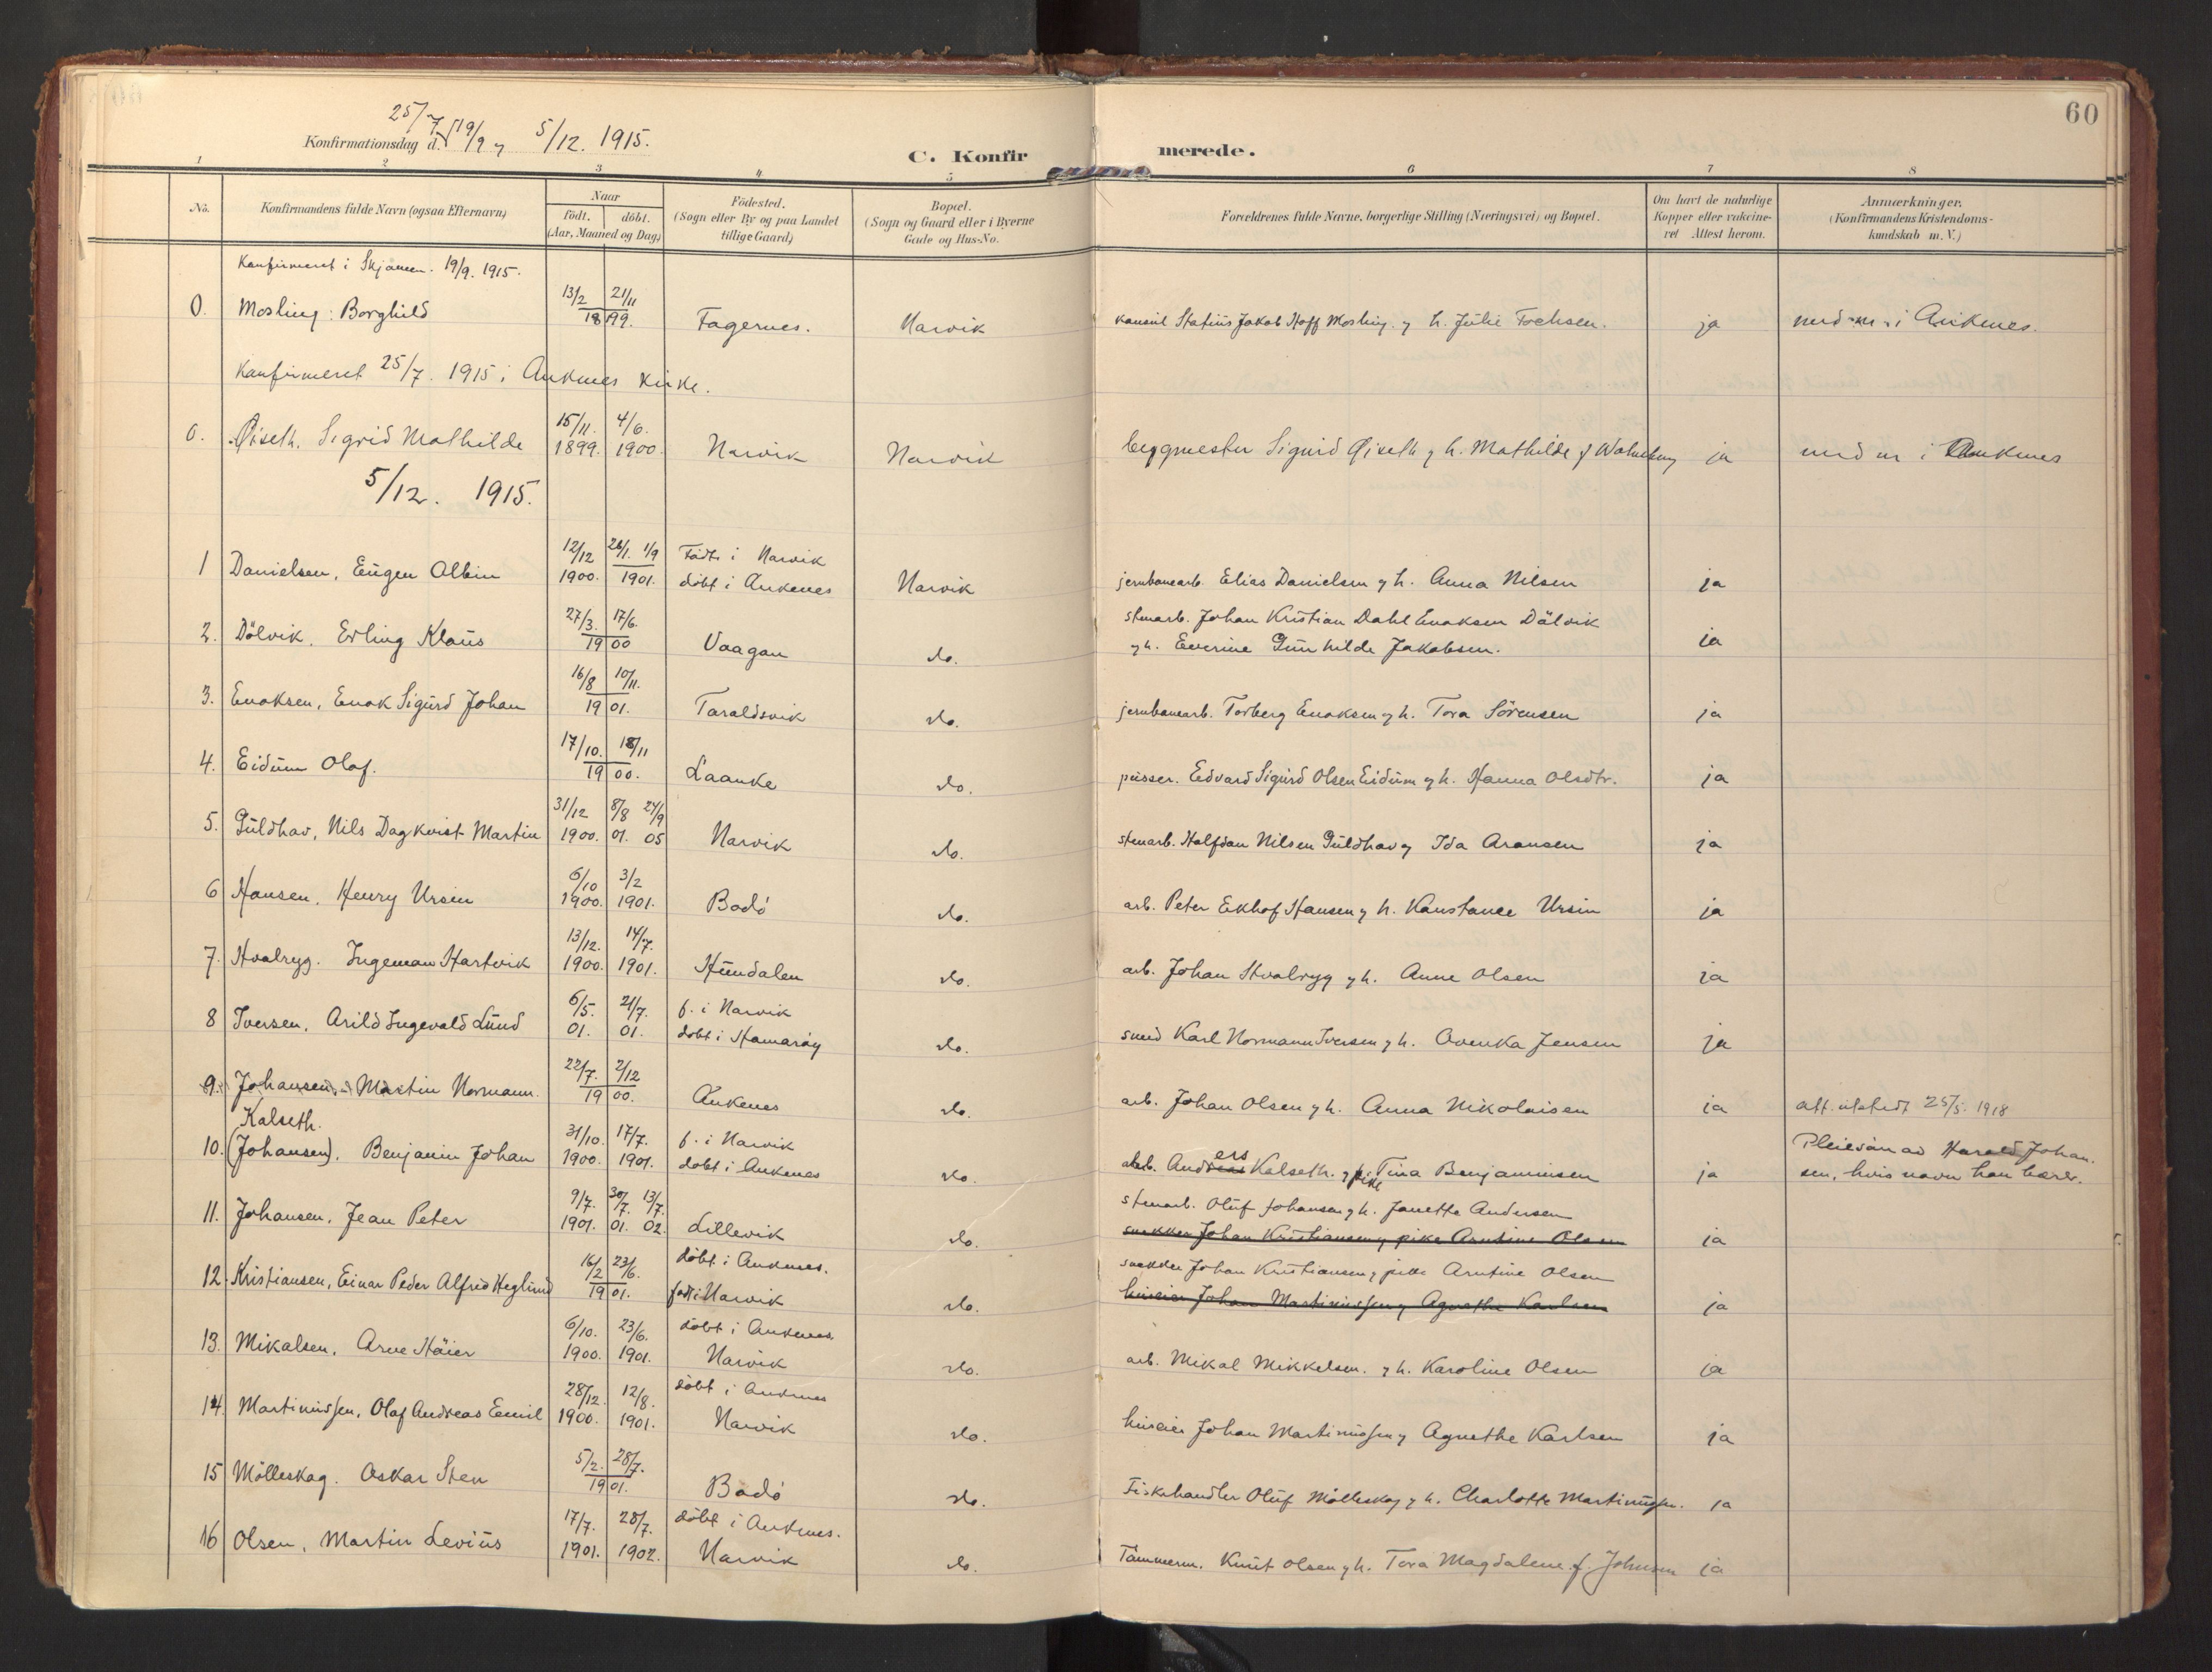 60
Konfirmationsdag d. 25/7 19/9 og 5/12. 1915.
C. Konfirmerede.
1 2 3 4 5 6 7 8
No.
Konfirmandens fulde Navn (ogsaa Efternavn)
Naar
födt. döbt.
(Aar, Maaned og Dag)
Födested.
(Sogn eller By og paa Landet
tillige Gaard)
Bopæl.
(Sogn og Gaard eller i Byerne
Gade og Hus-No.
Forældrenes fulde Navne, borgerlige Stilling (Næringsvei) og Bopæl.
Om havt de naturlige
Kopper eller vakcine-
ret Attest herom.
Anmærkninger.
(Konfirmandens Kristendoms-
kundskab m. V.)
Konfirmeret i Skjomen. 19/9. 1915.
0. Mosling: Borghild 13/2 21/11 1899. Fagernes. Narvik konsul Statius Jakob Hoff Mosling. og h. Julie Fochsen. ja med nr. i Ankenes.
Konfirmeret 25/7. 1915 i Ankenes kirke.
0. Øiseth. Sigrid Mathilde 15/11. 1899. 4/6. 1900. Narvik Narvik byggmester Sigurd Øiseth og h. Mathilde f. ja med nr i Ankenes
5/12. 1915.
1 Danielsen, Eugen Albin 12/12 1900. 26/1. 1/9 1901. Födt i Narvik döbt i Ankenes Narvik jernbanearb. Elias Danielsen og h. Anna Nilsen ja
2. Dölvik. Erling Klaus 27/3. 17/6. 1900 Vaagan do. stenarb. Johan Kristian Dahl Enoksen Dälvik
og h. Everine Gunhilde Jakobsen. ja
3. Enoksen, Enok Sigurd Johan 16/8 10/11. 1901. Taraldsvik do. jernbanearb. Torberg Enoksen og h. Tora Sörensen ja
4. Eidum Olaf. 17/10. 18/11 1900. Laanke do. pusser. Edvard Sigurd Olsen Eidum og h. Hanna Olsdtr. ja
5. Guldhav, Nils Dagkvist Martin 31/12 1900. 8/8 01. 24/9 05 Narvik do. stenarb. Halfdan Nilsen Guldhav og Ida Aronsen ja
6 Hansen. Henry Ursin 6/10 1900. 3/2 1901. Bodö do. arb. Peter Ekhof Hansen og h. Konstance Ursin ja
7. Hvalryg. Ingeman Hartvik 13/12. 1900. 14/7. 1901. Hundalen do. arb. Johan Hvalryg og h. Anne Olsen ja
8 Iversen, Arild Ingevald Lund 6/5. 01. 21/7. 01. f. i Narvik döbt i Hamaröy do. smed Karl Normann Iversen og h. Ovenka Jensen ja
9. Johansen, Martin Normann. 22/7. 2/12 1900. Ankenes do. arb. Johan Olsen og h. Anna Nikolaisen ja att. utstedt 25/5. 1918
Kalseth.
10. (Johansen). Benjamin Johan 31/10. 1900. 17/7. 1901. f. i Narvik döbt i Ankenes do. arb. Anders Kalseth. og pike Tina Benjaminsen ja Pleiesön av Harald Johan-
sen, hvis navn han bærer.
11. Johansen, Jean Peter 9/7. 1901. 30/7. 01. 13/7. 02. Lillevik do. stenarb. Oluf Johansen og h. Janette Andersen
snekker Johan Kristiansen og pike Arntine Olsen ja
12. Kristiansen, Einar Peder Alfred Heglund 16/2 23/6. 1901. döbt i Ankenes. födt i Narvik do. snekker Johan Kristiansen og pike Arntine Olsen
huseier Johan Martinussen og Agnethe Karlsen ja
13. Mikalsen, Arve Häier 6/10. 1900. 23/6. 1901. döbt i Ankenes. Narvik do. arb. Mikal Mikkelsen. og h. Karoline Olsen ja
14. Martinussen, Olaf Andreas Eemil 28/12. 1900. 12/8. 1901. döbt i Ankenes Narvik do. huseier Johan Martinussen og Agnethe Karlsen ja
15 Mölleskog. Oskar Sten 5/2. 28/7. 1901. Bodö do. Fiskehandler Oluf Mölleskog og h. Charlotte Martinussen. ja
16 Olsen, Martin Levius 17/7. 1901. 28/7. 1902. döbt i Ankenes. Narvik do. Tömmerm. Knut Olsen og h. Tora Magdalene f. Johnsen ja